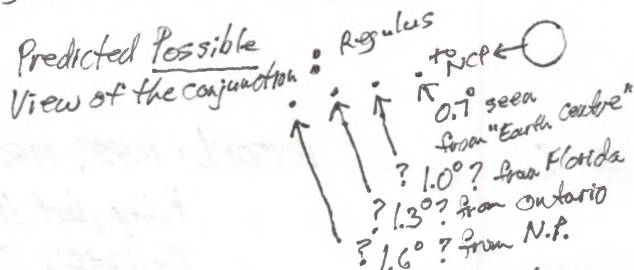 Predicted Possible
View of the conjunction :
Regulus
to NCP
0.7° seen
from "Earth centre"
? 1.0° ? from Florida
? 1.3° ? from Ontario
? 1.6° ? from N.P.